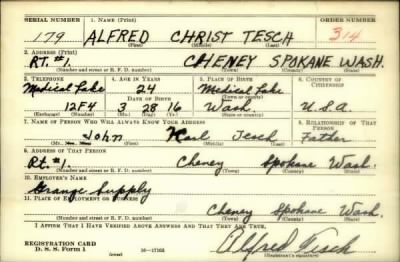 SERIAL NUMBER 1. NAME (Print) ORDER NUMBER
179 ALFRED CHRIST TESCH 314
(First) (Middle) (Last)
2. ADDRESS (Print)
RT. #1. CHENEY SPOKANE WASH.
(Number and street or R. F. D. number) (Town) (County) (State)
3. TELEPHONE 4. AGE IN YEARS 5. PLACE OF BIRTH 6. COUNTRY OF CITIZENSHIP
Medical Lake 24 Medical Lake
DATE OF BIRTH (Town or county)
12F4 3 28 16 Wash. U.S.A.
(Exchange) (Number) (Mo.) (Day) (Yr.) (State or country)
7. NAME OF PERSON WHO WILL ALWAYS KNOW YOUR ADDRESS 8. RELATIONSHIP OF THAT PERSON
John Karl Tesch Father
(Mr., Mrs., Miss) (First) (Middle) (Last)
9. ADDRESS OF THAT PERSON
Rt. #1. Cheney Spokane Wash.
(Number and street or R. F. D. number) (Town) (County) (State)
10. EMPLOYER'S NAME
Grange Supply
11. PLACE OF EMPLOYMENT OR BUSINESS
Cheney Spokane Wash.
(Number and street or R. F. D. number) (Town) (County) (State)
I AFFIRM THAT I HAVE VERIFIED ABOVE ANSWERS AND THAT THEY ARE TRUE.
REGISTRATION CARD
D. S. S. Form 1 (over) 16—17105 Alfred Tesch
(Registrant's signature)